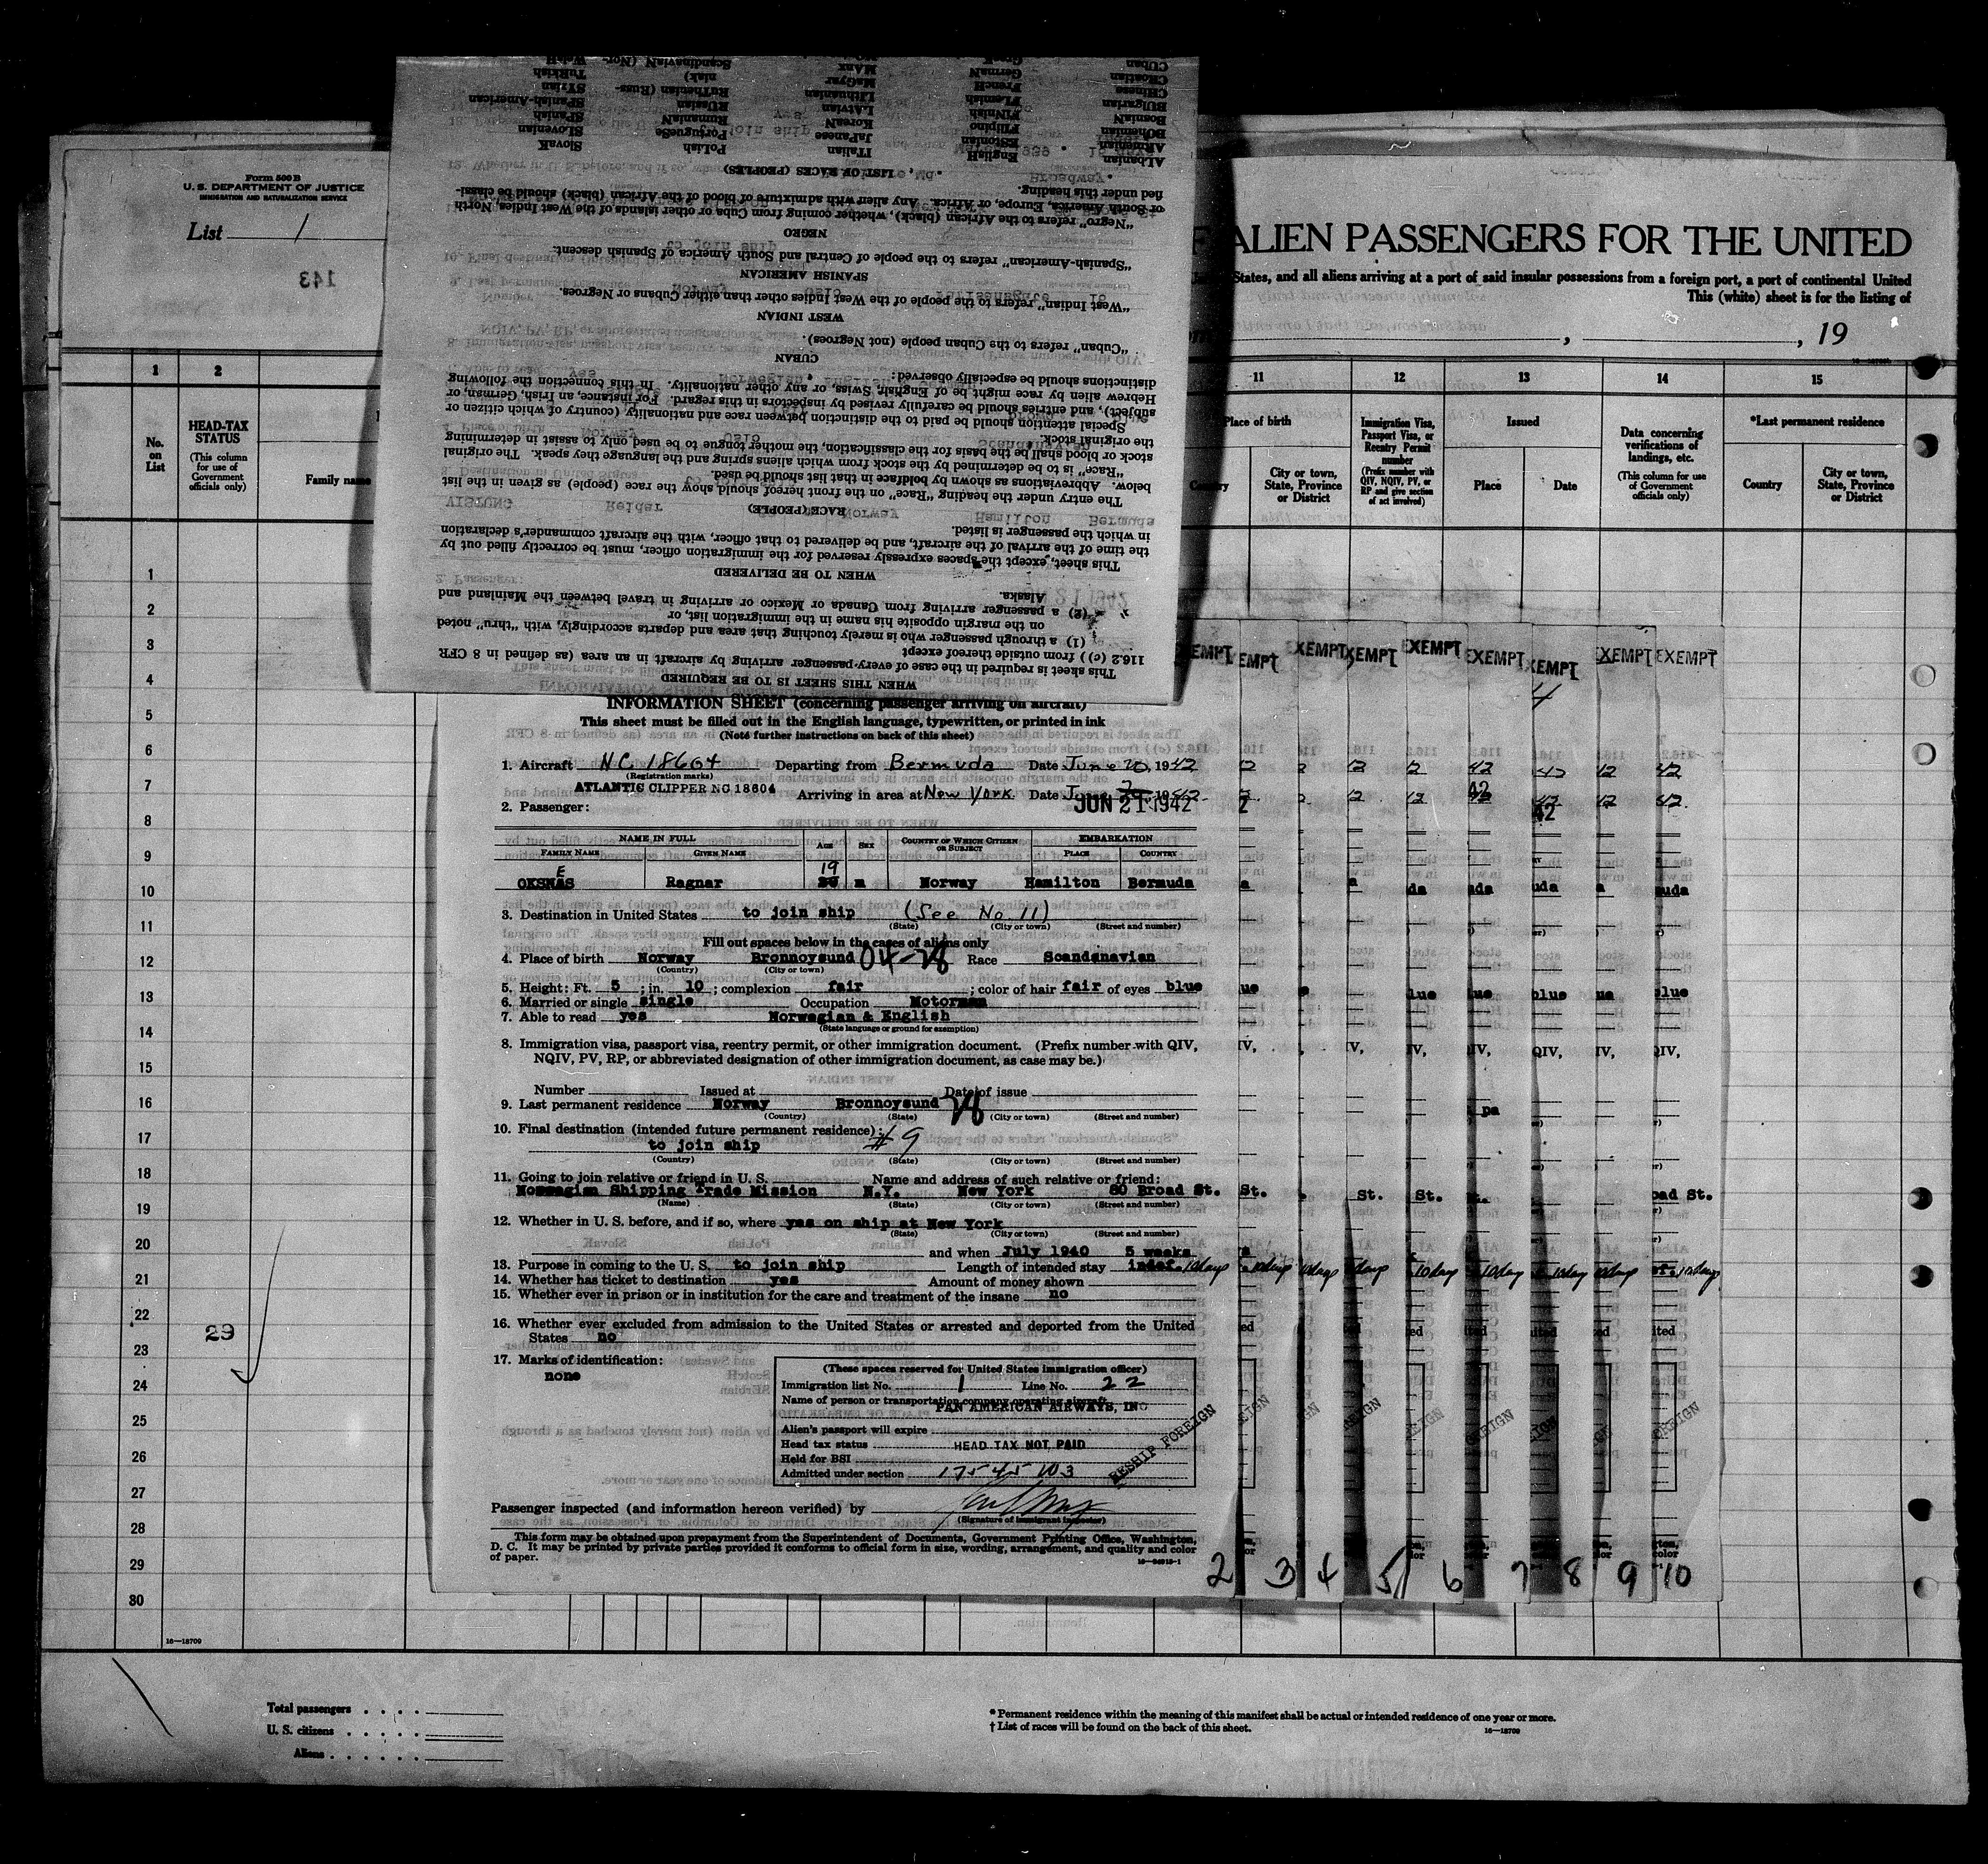 Form 500 B
U. S. DEPARTMENT OF JUSTICE
IMMIGRATION AND NATURALIZATION SERVICE
List 1
143
ALIEN PASSENGERS FOR THE UNITED
States, and all aliens arriving at a port of said insular possessions from a foreign port, a port of continental United
This (white) sheet is for the listing of
, , 19
1 2 11 12 13 14 15
No. on List
HEAD-TAX STATUS
(This column for use of Government officials only)
Family name
Place of birth
Country
City or town, State, Province or District
Immigration Visa, Passport Visa, or Reentry Permit number
(Prefix number with QIV, NQIV, PV, or RP and give section of act involved)
Issued
Place Date
Data concerning verifications of landings, etc.
(This column for use of Government officials only)
*Last permanent residence
Country
City or town, State, Province or District
1
2
3
4
5
6
7
8
9
10
11
12
13
14
15
16
17
18
19
20
21
22
23
24
25
26
27
28
29
30
29
16—18709
WHEN THIS SHEET IS TO BE REQUIRED
This sheet is required in the case of every passenger arriving by aircraft in an area (as defined in 8 CFR
116.2 (c) ) from outside thereof except
(1) a through passenger who is merely touching that area and departs accordingly, with "thru" noted
on the margin opposite his name in the immigration list, or
(2) a passenger arriving from Canada or Mexico or arriving in travel between the Mainland and
Alaska.
WHEN TO BE DELIVERED
This sheet, except the spaces expressly reserved for the immigration officer, must be correctly filled out by
the time of the arrival of the aircraft, and be delivered to that officer, with the aircraft commander's declaration
in which the passenger is listed.
RACE (PEOPLE)
The entry under the heading "Race" on the front hereof should show the race (people) as given in the list
below. Abbreviations as shown by boldface in that list should be used.
"Race" is to be determined by the stock from which aliens spring and the language they speak. The original
stock or blood shall be the basis for the classification, the mother tongue to be used only to assist in determining
the original stock.
Special attention should be paid to the distinction between race and nationality (country of which citizen or
subject), and entries should be carefully revised by inspectors in this regard. For instance, an Irish, German, or
Hebrew alien by race might be of English, Swiss, or any other nationality. In this connection the following
distinctions should be especially observed:
CUBAN
"Cuban" refers to the Cuban people (not Negroes).
WEST INDIAN
"West Indian" refers to the people of the West Indies other than either Cubans or Negroes.
SPANISH AMERICAN
"Spanish-American" refers to the people of Central and South America of Spanish descent.
NEGRO
"Negro" refers to the African (black), whether coming from Cuba or other islands of the West Indies, North
or South America, Europe, or Africa. Any alien with admixture of blood of the African (black) should be classi-
fied under this heading.
LIST OF RACES (PEOPLES)
ALbanian ENglish ITalian POLish SlovaK
ARmenian EStonian JaPanese PortugueSe SLOvenian
BOhemian FIlipino KoreaN RumaniaN SPaniSh
BosniaN FINnish LATvian RUSsian SPanish-American
BULgarian FLemish LIthuanian RutHenian (Rus- SYrian
CHInese FrencH MaGyar niak) TuRkish
CRoatian GermaN MAnx ScandinaviaN (Nor- WelsH
CUban
INFORMATION SHEET (concerning passenger arriving on aircraft)
This sheet must be filled out in the English language, typewritten, or printed in ink
(Note further instructions on back of this sheet)
1. Aircraft NC 18604 Departing from Bermuda Date June 20, 1942
(Registration marks)
ATLANTIC CLIPPER NC 18604 Arriving in area at New York Date June 1942
JUN 21 1942
2. Passenger:
NAME IN FULL AGE SEX COUNTRY OF WHICH CITIZEN OR SUBJECT EMBARKATION
FAMILY NAME GIVEN NAME PLACE COUNTRY
E 19
OKSNAS Ragnar 20 m Norway Hamilton Bermuda
3. Destination in United States to join ship (See No 11)
(State) (City or town) (Street and number)
Fill out spaces below in the cases of aliens only
4. Place of birth Norway Bronnoysund 04-28 Race Scandanavian
(Country) (City or town)
5. Height: Ft. 5 ; in. 10 ; complexion fair ; color of hair fair of eyes blue
6. Married or single single Occupation Motorman
7. Able to read yes Norwegian & English
(State language or ground for exemption)
8. Immigration visa, passport visa, reentry permit, or other immigration document. (Prefix number with QIV,
NQIV, PV, RP, or abbreviated designation of other immigration document, as case may be.)
Number Issued at Date of issue
9. Last permanent residence Norway Bronnoysund 28
(Country) (State) (City or town) (Street and number)
10. Final destination (intended future permanent residence): #9
to join ship
(Country) (State) (City or town) (Street and number)
11. Going to join relative or friend in U. S. Name and address of such relative or friend:
Norwegian Shipping Trade Mission N.Y. New York 80 Broad St.
(Name) (State) (City or town) (Street and number)
12. Whether in U. S. before, and if so, where yes on ship at New York
(State) (City or town) (Street and number)
and when July 1940 5 weeks
13. Purpose in coming to the U. S. to join ship Length of intended stay indef. 10 days
14. Whether has ticket to destination yes Amount of money shown
15. Whether ever in prison or in institution for the care and treatment of the insane no
16. Whether ever excluded from admission to the United States or arrested and deported from the United
States no
17. Marks of identification:
none
(These spaces reserved for United States immigration officer)
Immigration list No. 1 Line No. 22
Name of person or transportation company operating aircraft
PAN AMERICAN AIRWAYS, INC
Alien's passport will expire
Head tax status HEAD TAX NOT PAID
Held for BSI
Admitted under section
RESHIP FOREIGN
Passenger inspected (and information hereon verified) by
(Signature of Immigrant Inspector)
This form may be obtained upon prepayment from the Superintendent of Documents, Government Printing Office, Washington,
D. C. It may be printed by private parties provided it conforms to official form in size, wording, arrangement, and quality and color
of paper.
EXEMPT EXEMPT EXEMPT EXEMPT EXEMPT EXEMPT EXEMPT EXEMPT EXEMPT
2 3 4 5 6 7 8 9 10
Total passengers
U. S. citizens
Aliens
* Permanent residence within the meaning of this manifest shall be actual or intended residence of one year or more.
† List of races will be found on the back of this sheet.
16—18709